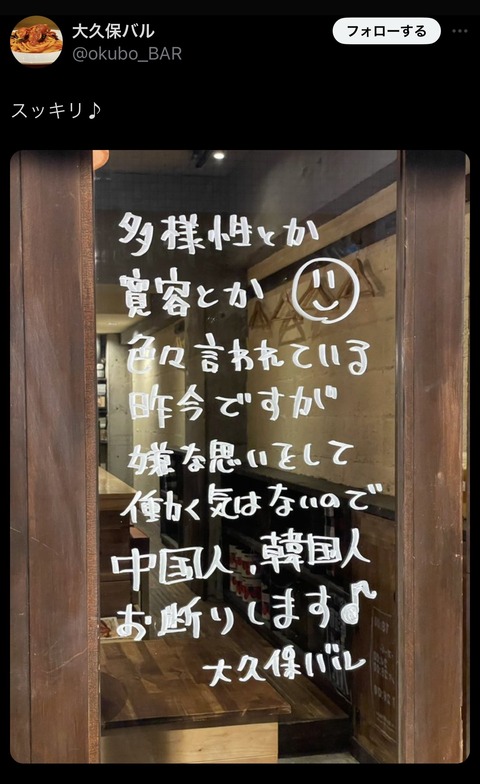 大久保バル
@okubo_BAR
フォローする
スッキリ♪
多様性とか
寛容とか
色々言われている
昨今ですが
嫌な思いをして
働く気はないので
中国人、韓国人
お断りします♪
大久保バル